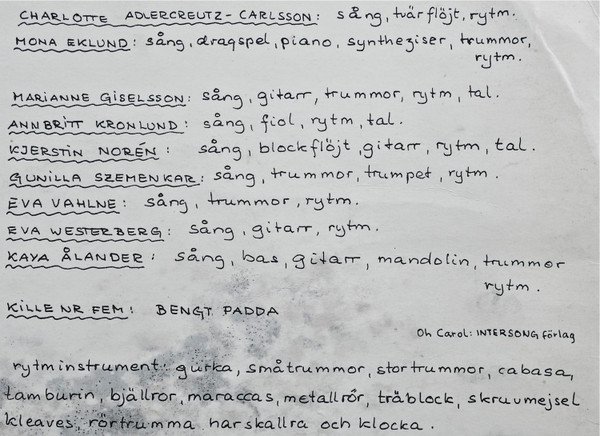 CHARLOTTE ADLERCREUTZ-CARLSSON: sång, tvärflöjt, rytm.
MONA EKLUND: sång, dragspel, piano, syntheziser, trummor,
rytm.
MARIANNE GISELSSON: sång, gitarr, trummor, rytm, tal.
ANNBRITT KRONLUND: sång, fiol, rytm, tal.
KJERSTIN NORÉN: sång, blockflöjt, gitarr, rytm, tal.
GUNILLA SZEMENKAR: sång, trummor, trumpet, rytm.
EVA VAHLNE: sång, trummor, rytm.
EVA WESTERBERG: sång, gitarr, rytm.
KAYA ÅLANDER: sång, bas, gitarr, mandolin, trummor
rytm.
KILLE NR FEM: BENGT PADDA
Oh Carol: INTERSONG förlag
rytminstrument: gurka, småtrummor, stortrummor, cabasa,
tamburin, bjällror, maraccas, metallrör, träblock, skruvmejsel
kleaves, rörtrumma, harskallra och klocka.